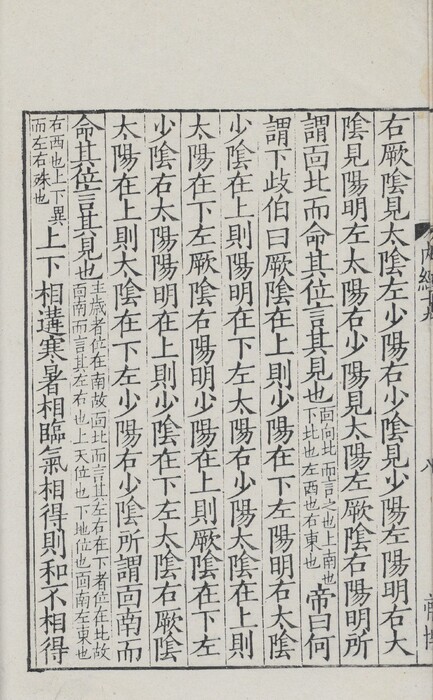 右厥陰見太陰左少陽右少陰見少陽左陽明右大
陰見陽明左太陽右少陽見太陽左厥陰右陽明所
謂面北而命其位言其見也面向北而言之也上南也下北也左西也右東也帝曰何
謂下歧伯曰厥陰在上則少陽在下左陽明右太陰
少陰在上則陽明在下左太陽右少陽太陰在上則
太陽在下左厥陰右陽明少陽在上則厥陰在下左
少陰右太陽陽明在上則少陰在下左太陰右厥陰
太陽在上則太陰在下左少陽右少陰所謂面南而
命其位言其見也主歲者位在南故面北而言其左右在下者位在北故面南而言其左右也上天位也下地位也面南左東也
右西也上下異而左右殊也上下相遘寒暑相臨氣相得則和不相得